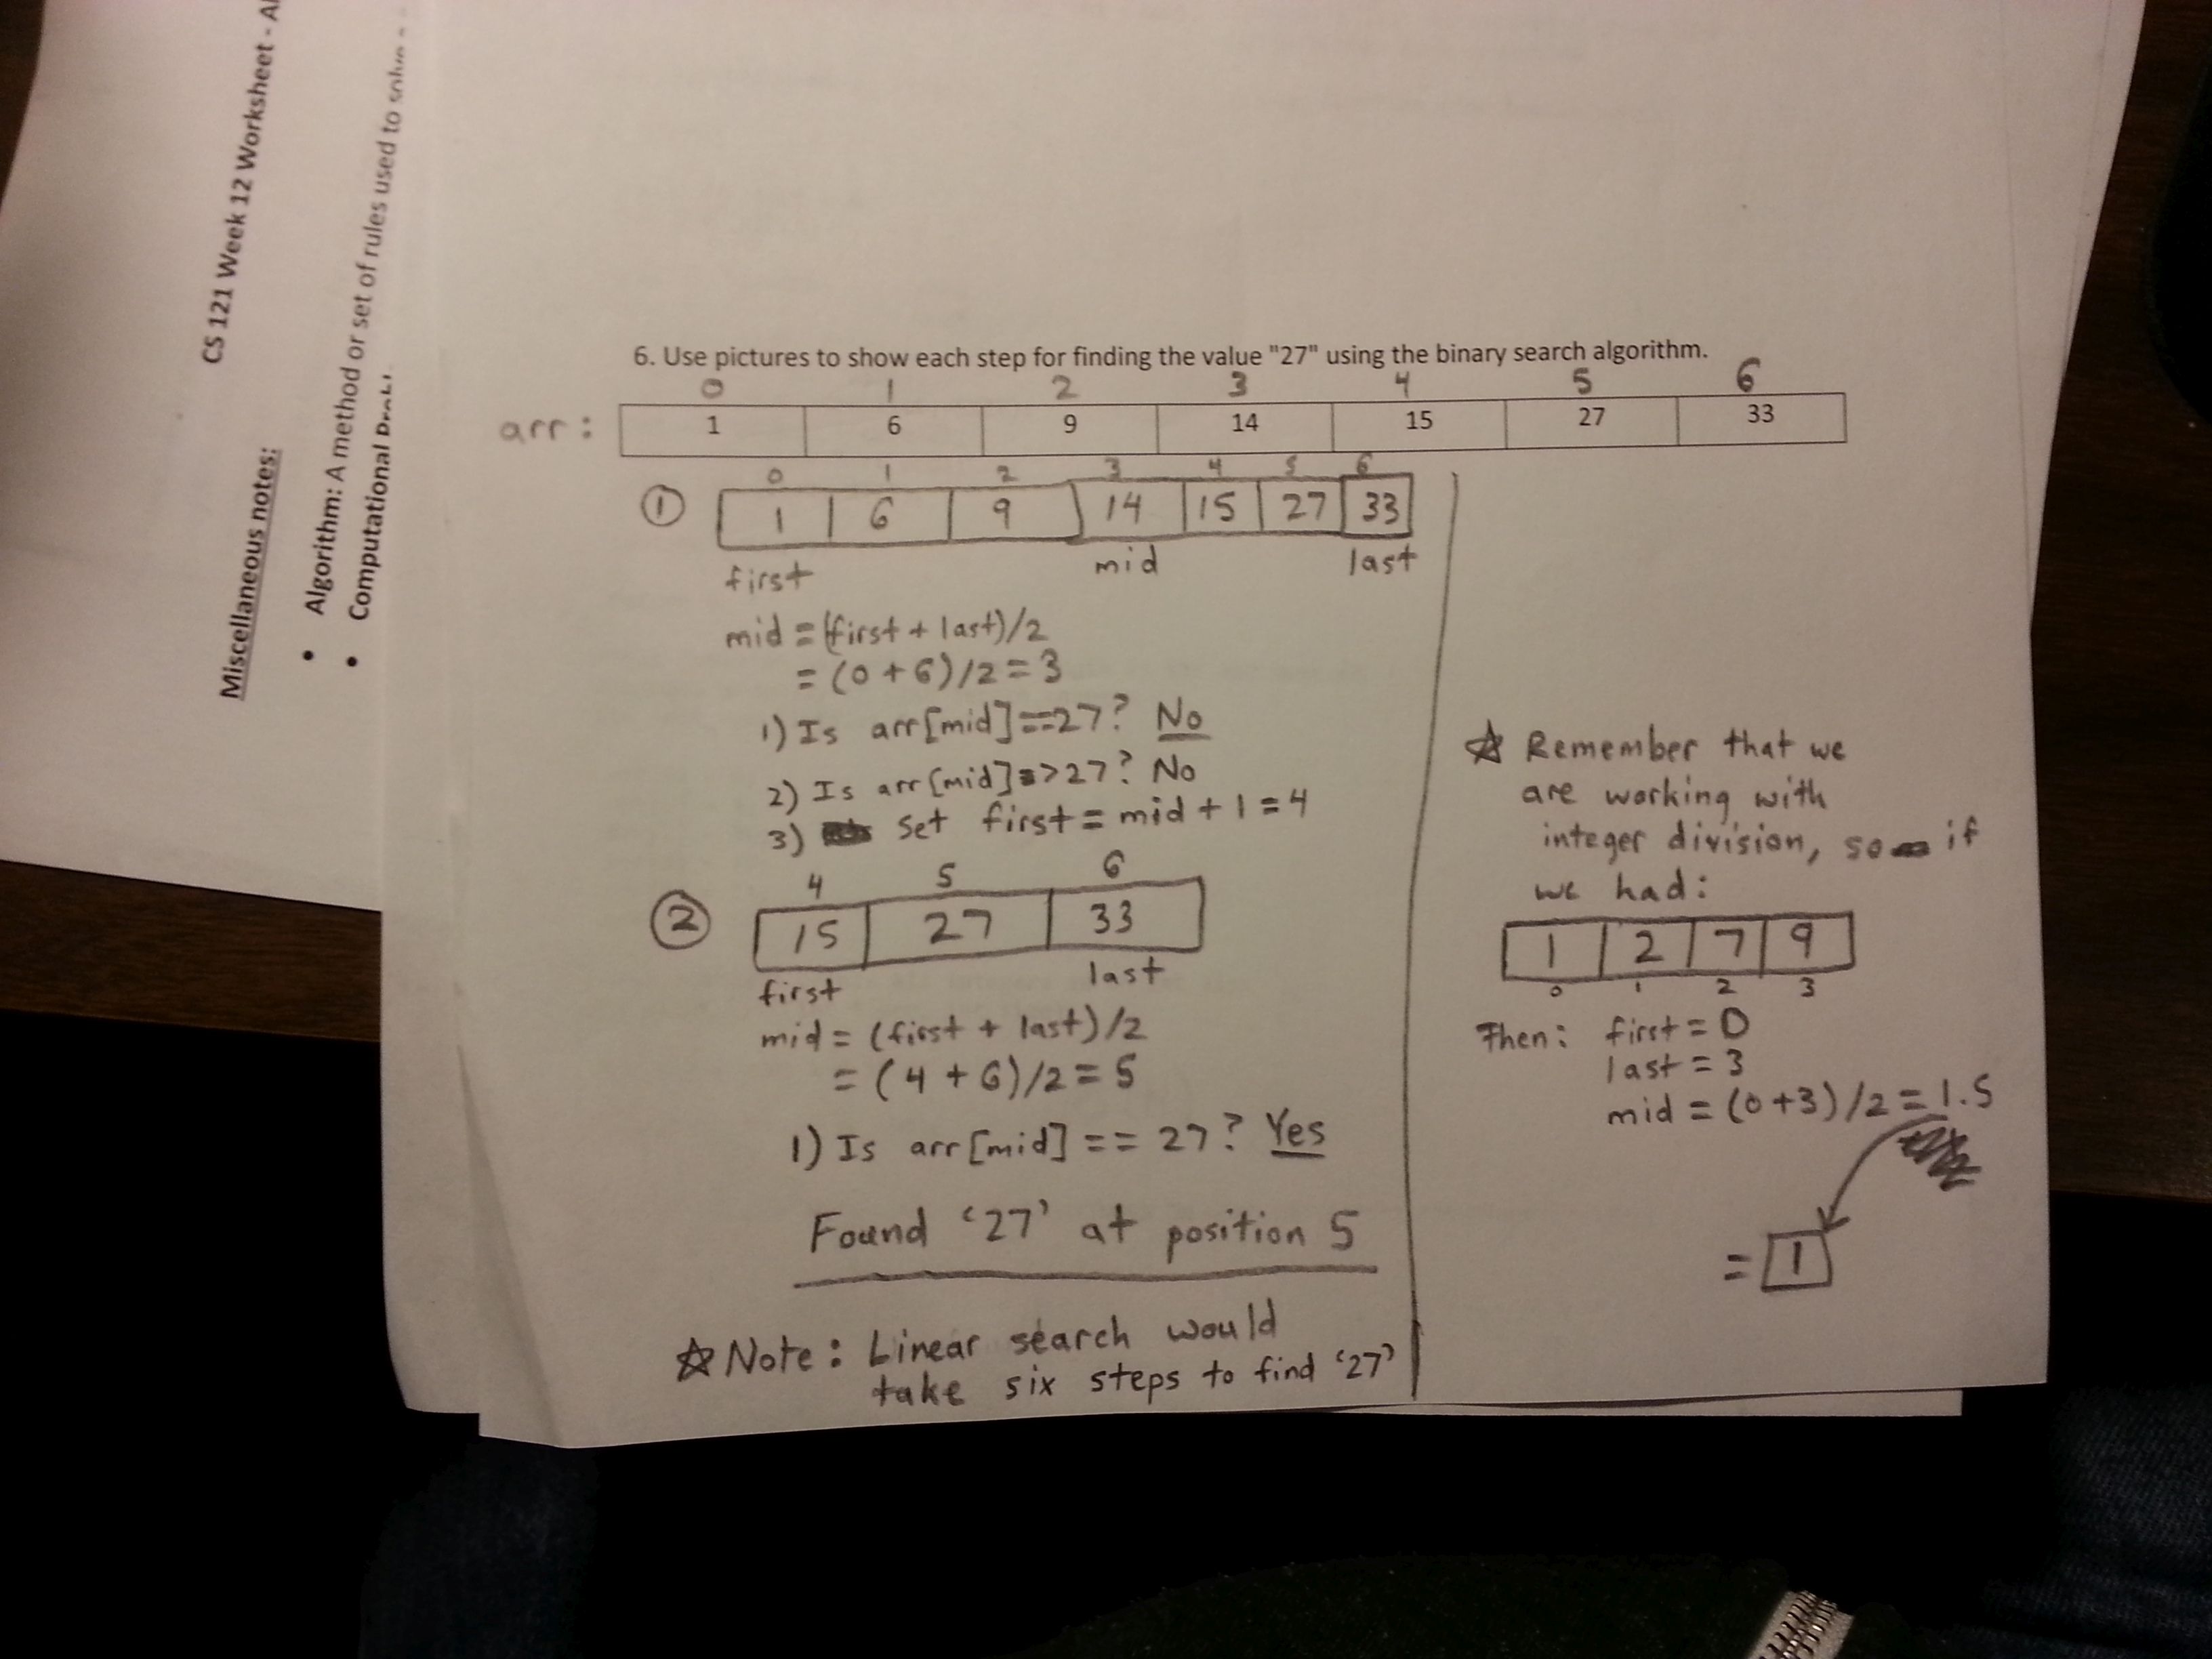 CS 121 Week 12 Worksheet -
Miscellaneous notes:
• Algorithm: A method or set of rules used to
• Computational
6. Use pictures to show each step for finding the value "27" using the binary search algorithm.
0 1 2 3 4 5 6
arr: 1 6 9 14 15 27 33
0 1 2 3 4 5 6
① 1 6 9 14 15 27 33
first mid last
mid = (first + last)/2
= (0 + 6)/2 = 3
1) Is arr[mid]==27? No
2) Is arr[mid]>27? No
3) set first = mid + 1 = 4
4 5 6
② 15 27 33
first last
mid = (first + last)/2
= (4 + 6)/2 = 5
1) Is arr[mid] == 27? Yes
Found '27' at position 5
☆ Note: Linear search would
take six steps to find '27'
☆ Remember that we
are working with
integer division, so if
we had:
1 2 7 9
0 1 2 3
Then: first = 0
last = 3
mid = (0+3)/2 = 1.5
= 1